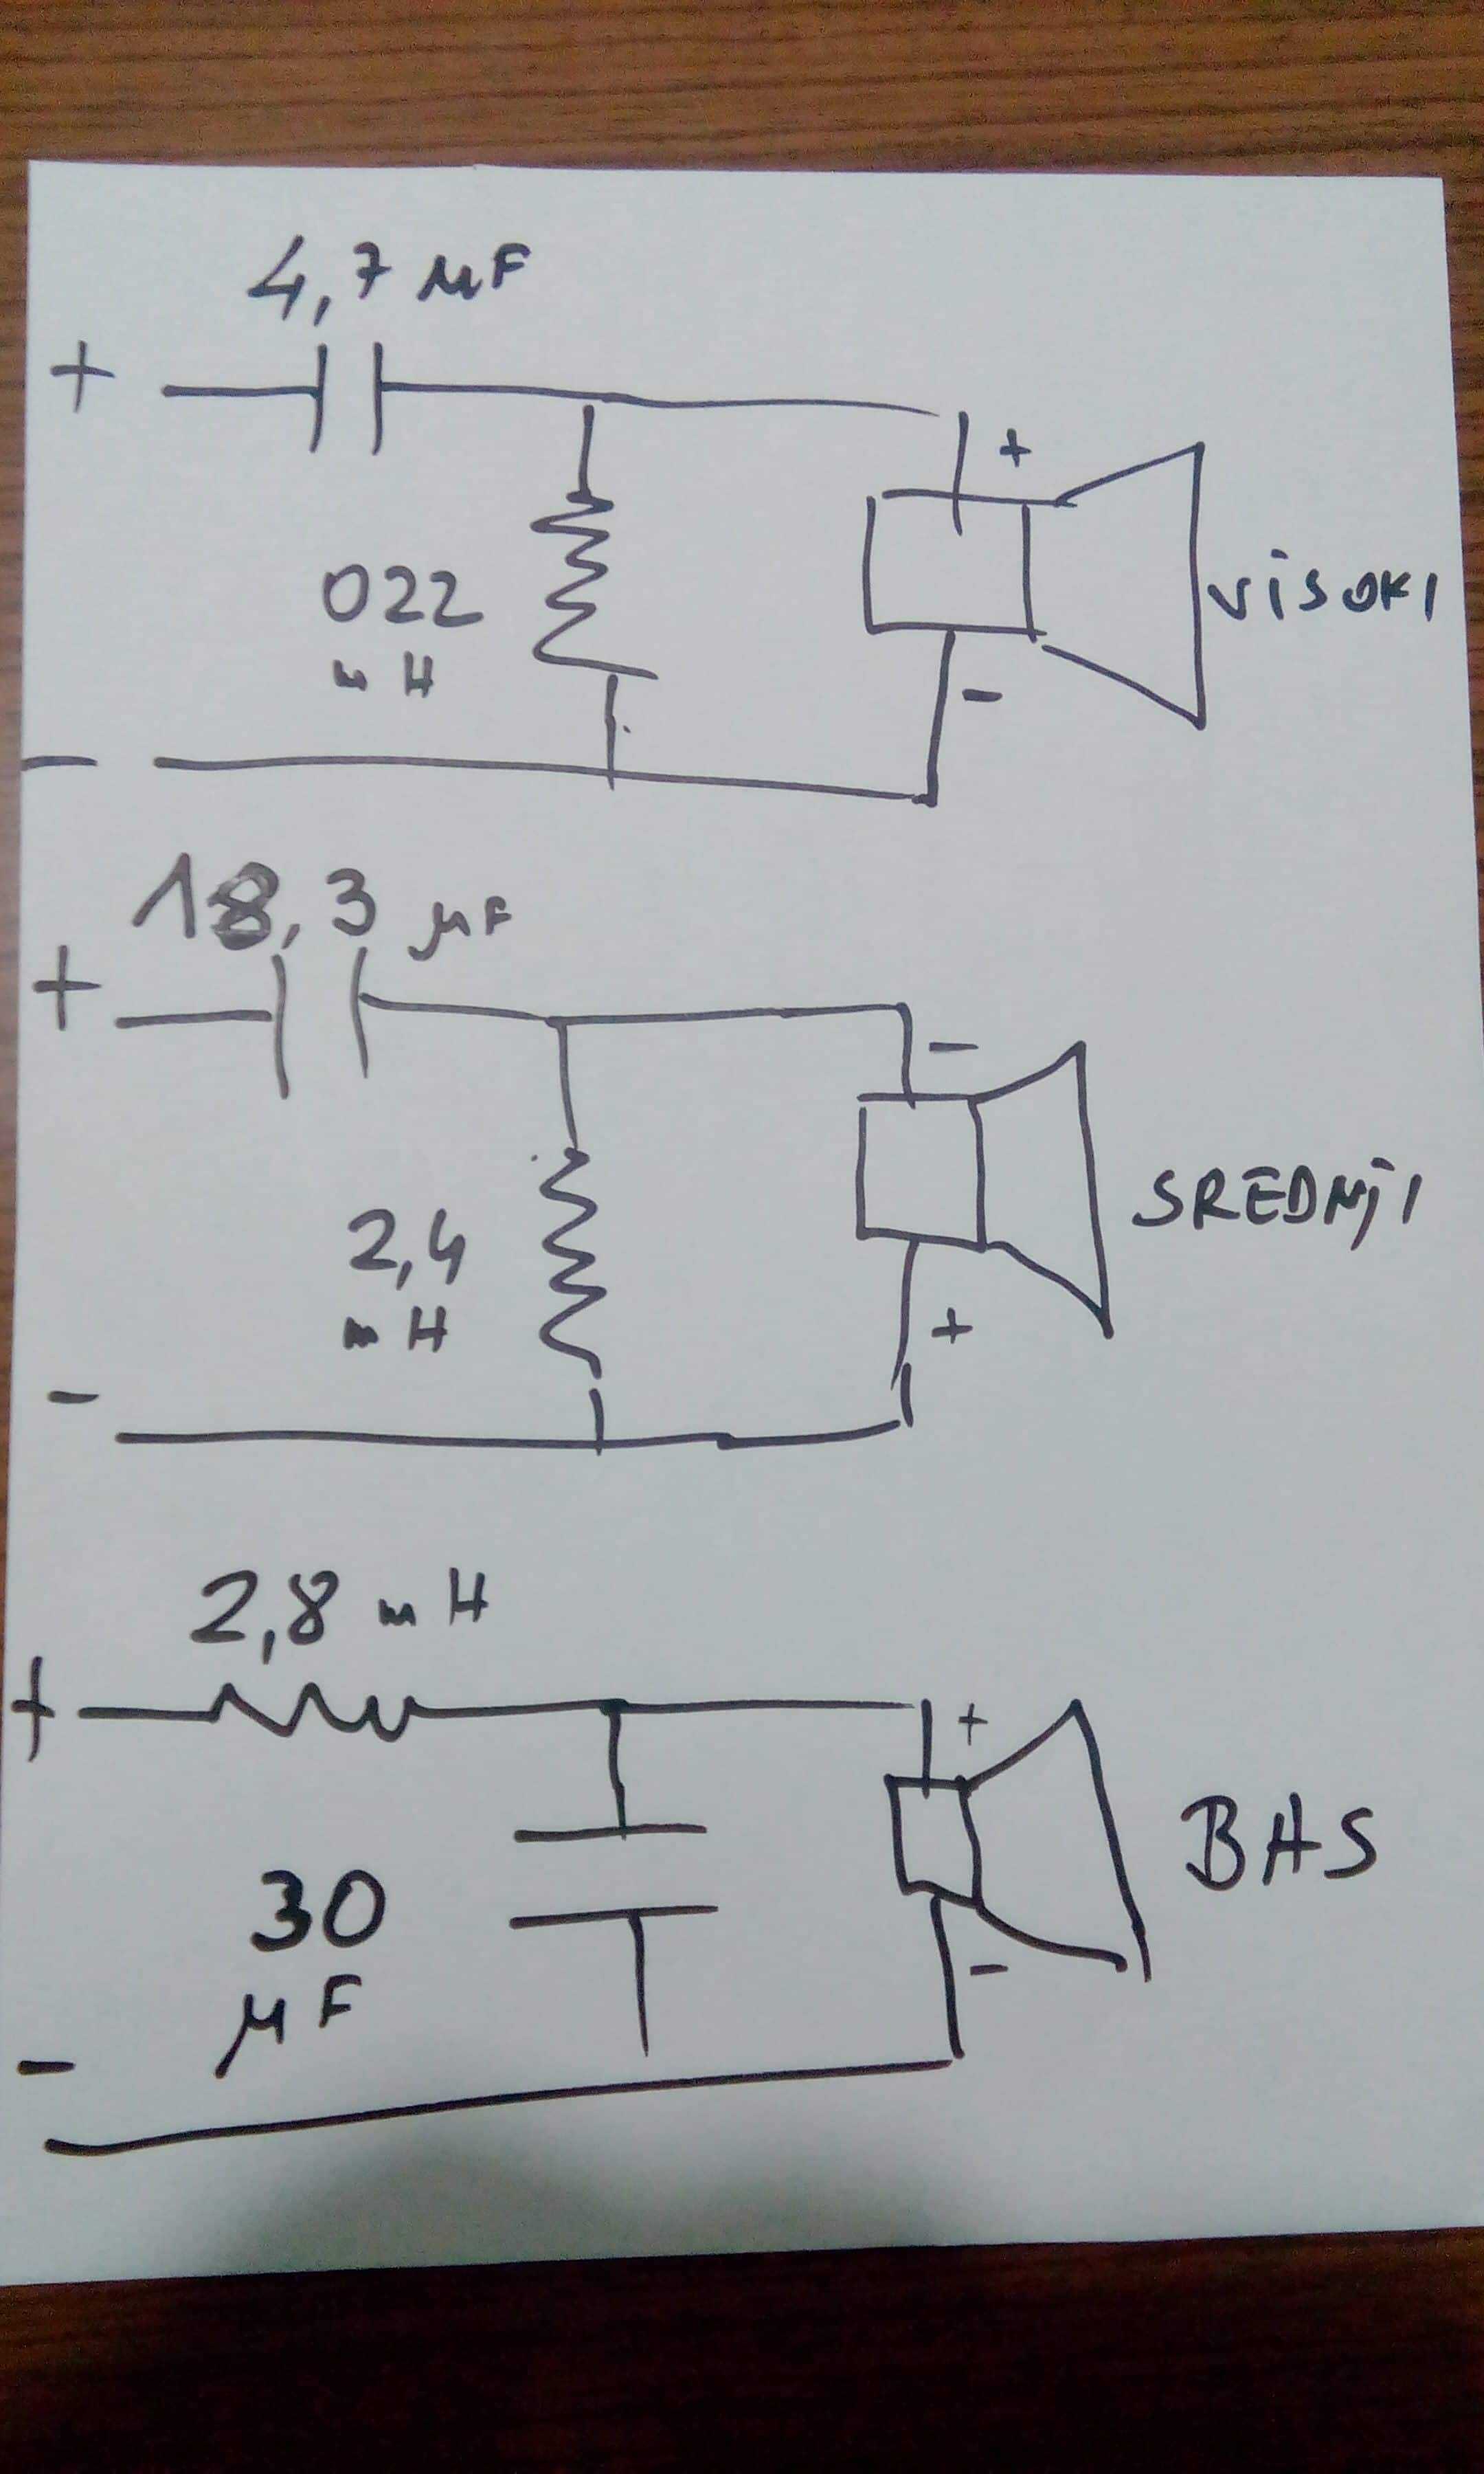 4,7 μF
+
+
022
mH
VISOKI
-
-
18,3 μF
+
-
2,4
mH
SREDNJI
+
-
2,8 mH
+
+
BAS
30
μF
-
-